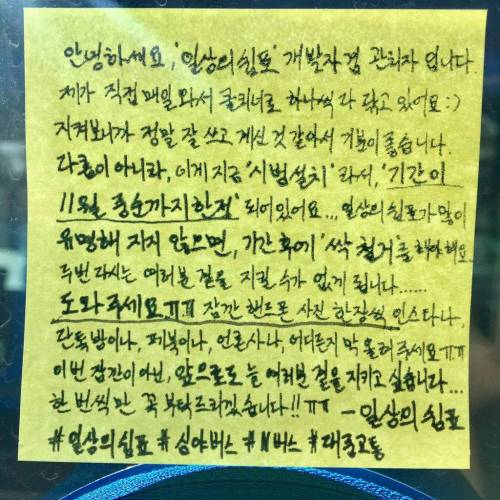 안녕하세요, '일상의쉼표' 개발자겸 관리자 입니다.
제가 직접 매일 와서 클리너로 하나씩 다 닦고 있어요 :)
지켜보니까 정말 잘 쓰고 계신 것 같아서 기분이 좋습니다.
다름이 아니라, 이게 지금 '시범설치' 라서, '기간이
11월 중순까지 한정' 되어있어요... 일상의 쉼표가 많이
유명해 지지 않으면, 기간 후에 '싹 철거'를 해야 해요
두번 다시는 여러분 곁을 지킬 수가 없게 됩니다......
도와주세요ㅠㅠ 잠깐 핸드폰 사진 한장씩 인스타나,
단톡방이나, 페북이나, 언론사나, 어디든지 막 올려주세요ㅠㅠ
이번 잠깐이 아닌, 앞으로도 늘 여러분 곁을 지키고 싶습니다...
한 번씩만 꼭 부탁드리겠습니다!! ㅠㅠ - 일상의 쉼표
#일상의쉼표 #심야버스 #N버스 #대중교통